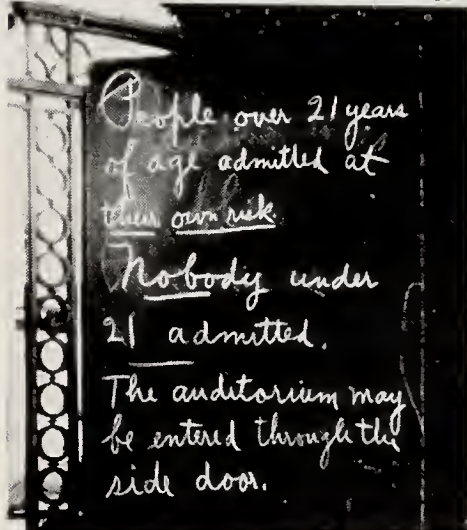 People over 21 years
of age admitted at
their own risk.
Nobody under
21 admitted.
The auditorium may
be entered through the
side door.